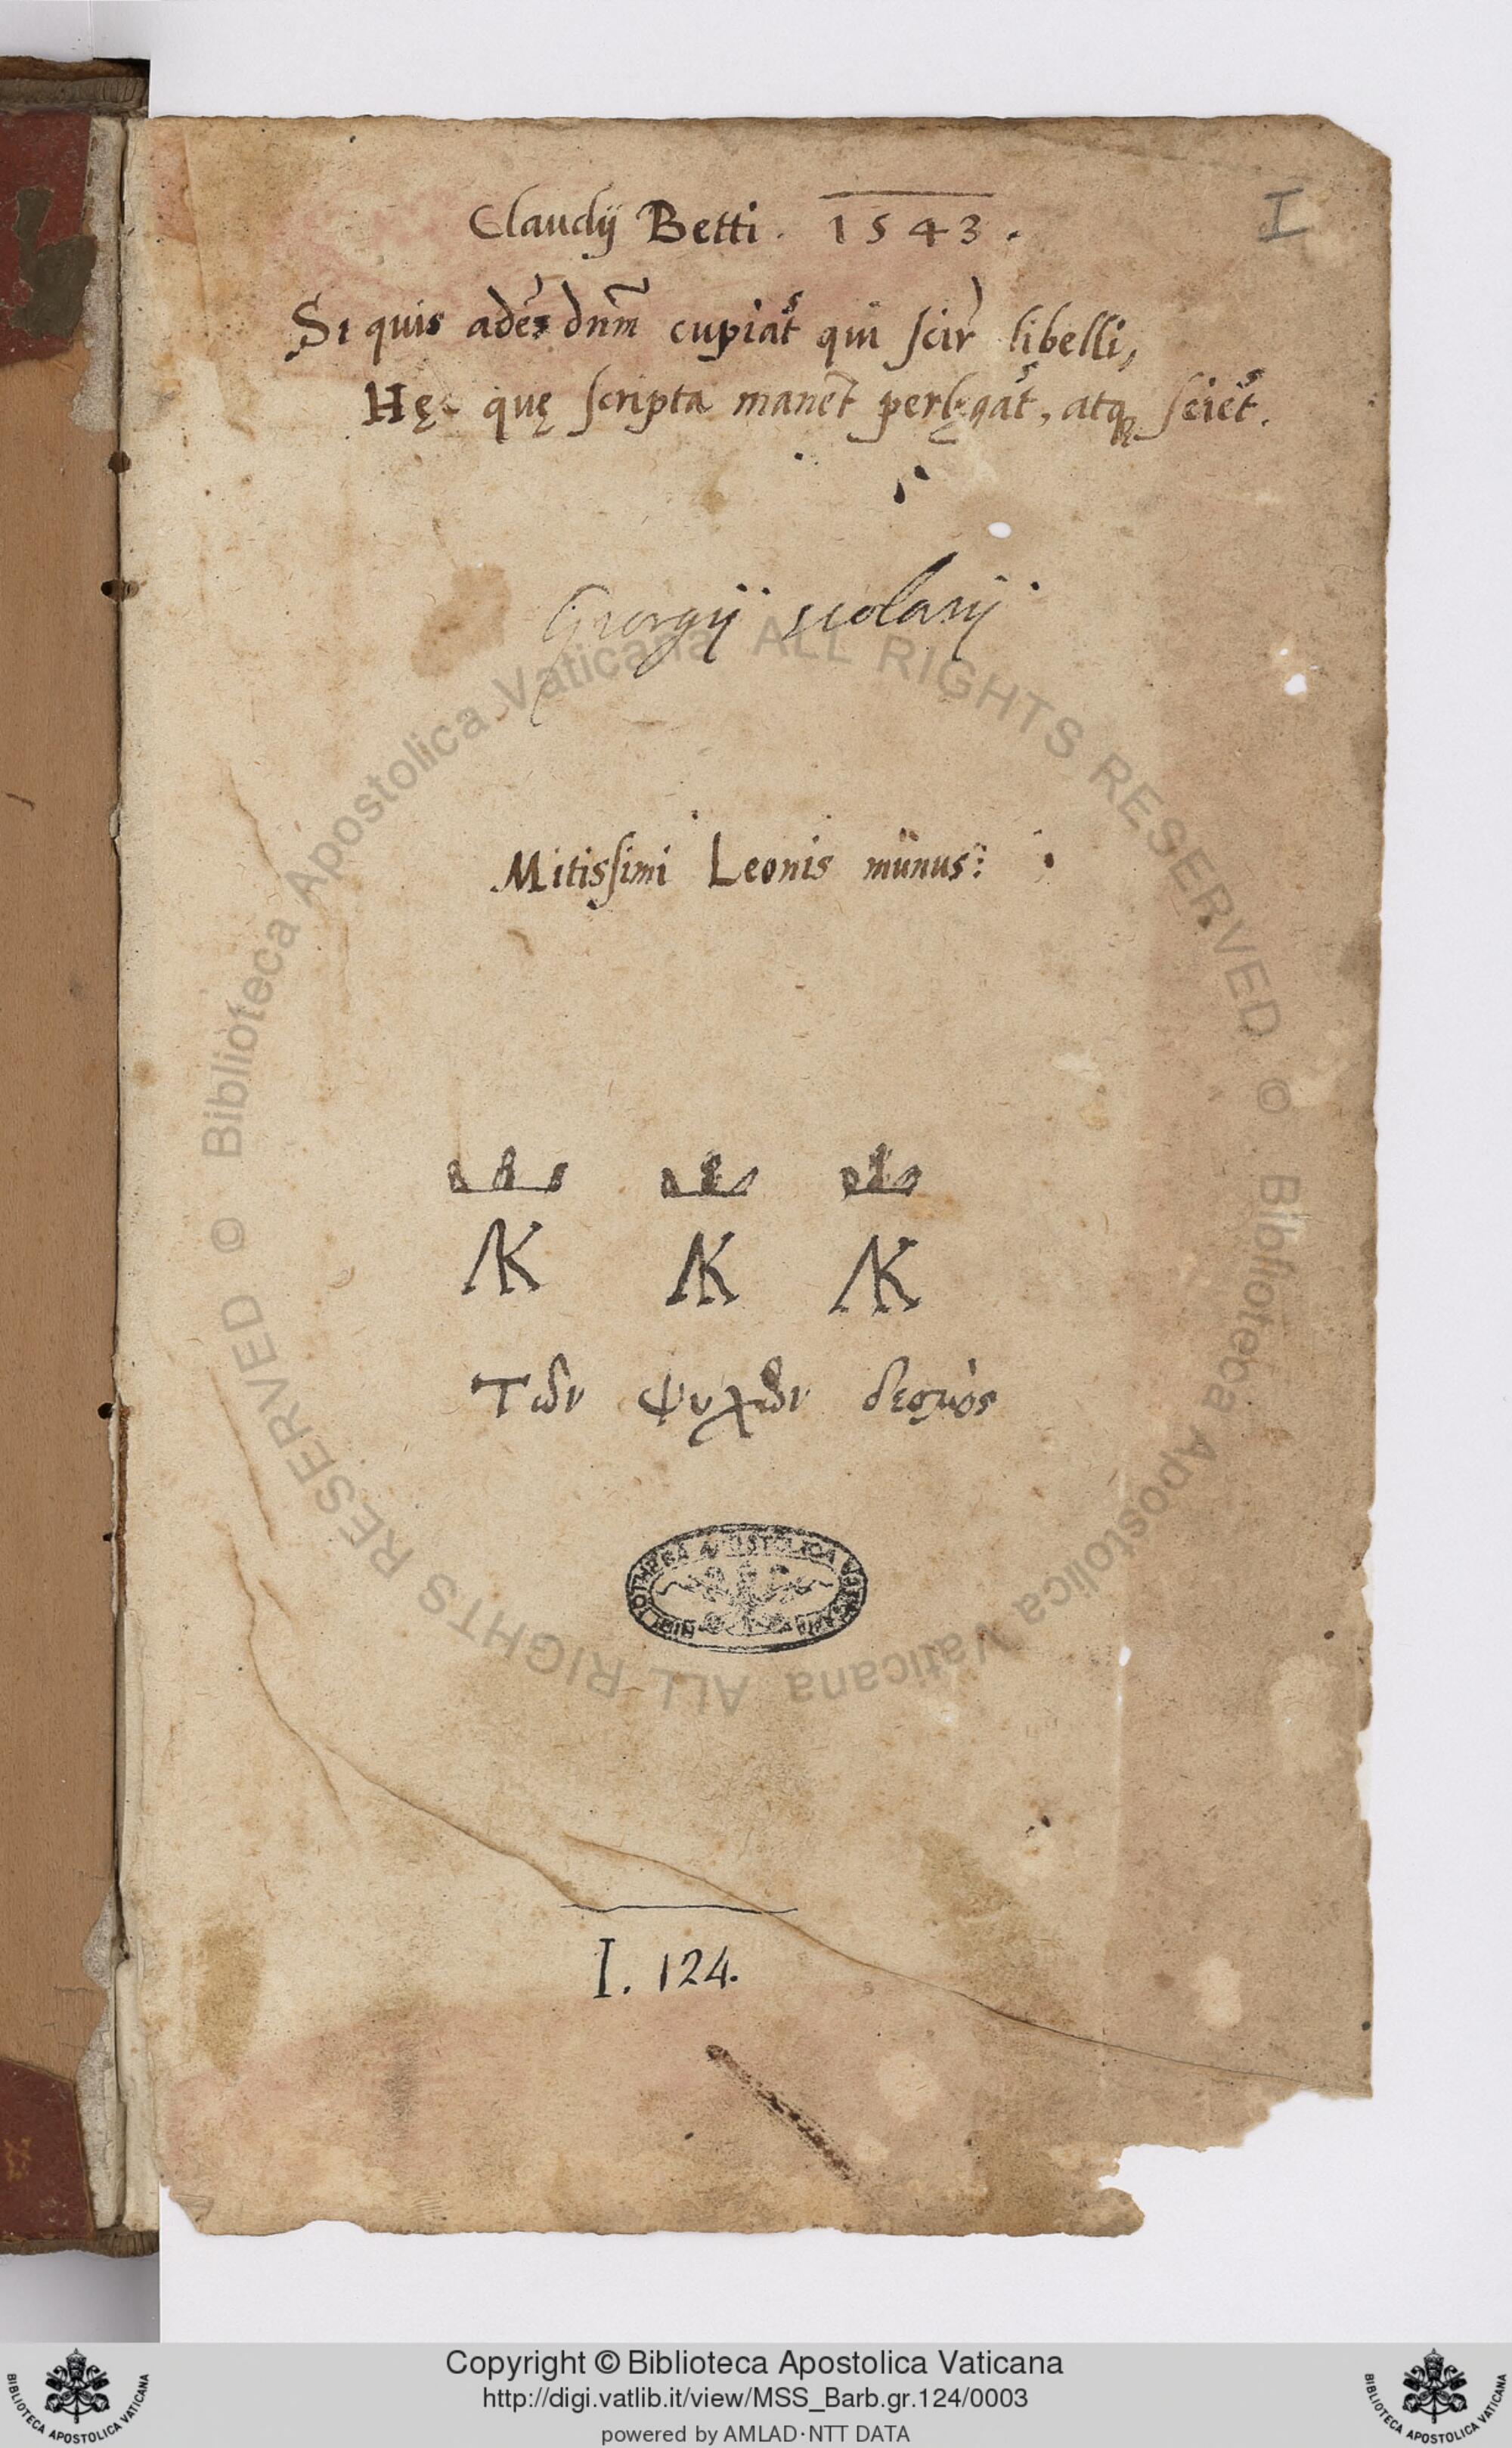 Claudij Betti. 1543.
I
Si quis adẽs dñm cupiat qui scir libelli,
Hęc quę scripta manẽt perlęgat, atq sciẽt.
Georgij scolarij
Mitissimi Leonis munus:
ΛK ΛK ΛK
Τῶν ψυχῶν δεσμὸς
BIBLIOTHECA APOSTOLICA VATICANA
I. 124.
© Biblioteca Apostolica Vaticana ALL RIGHTS RESERVED © Biblioteca Apostolica Vaticana ALL RIGHTS RESERVED
Copyright © Biblioteca Apostolica Vaticana
http://digi.vatlib.it/view/MSS_Barb.gr.124/0003
powered by AMLAD·NTT DATA
BIBLIOTECA APOSTOLICA VATICANA
BIBLIOTECA APOSTOLICA VATICANA